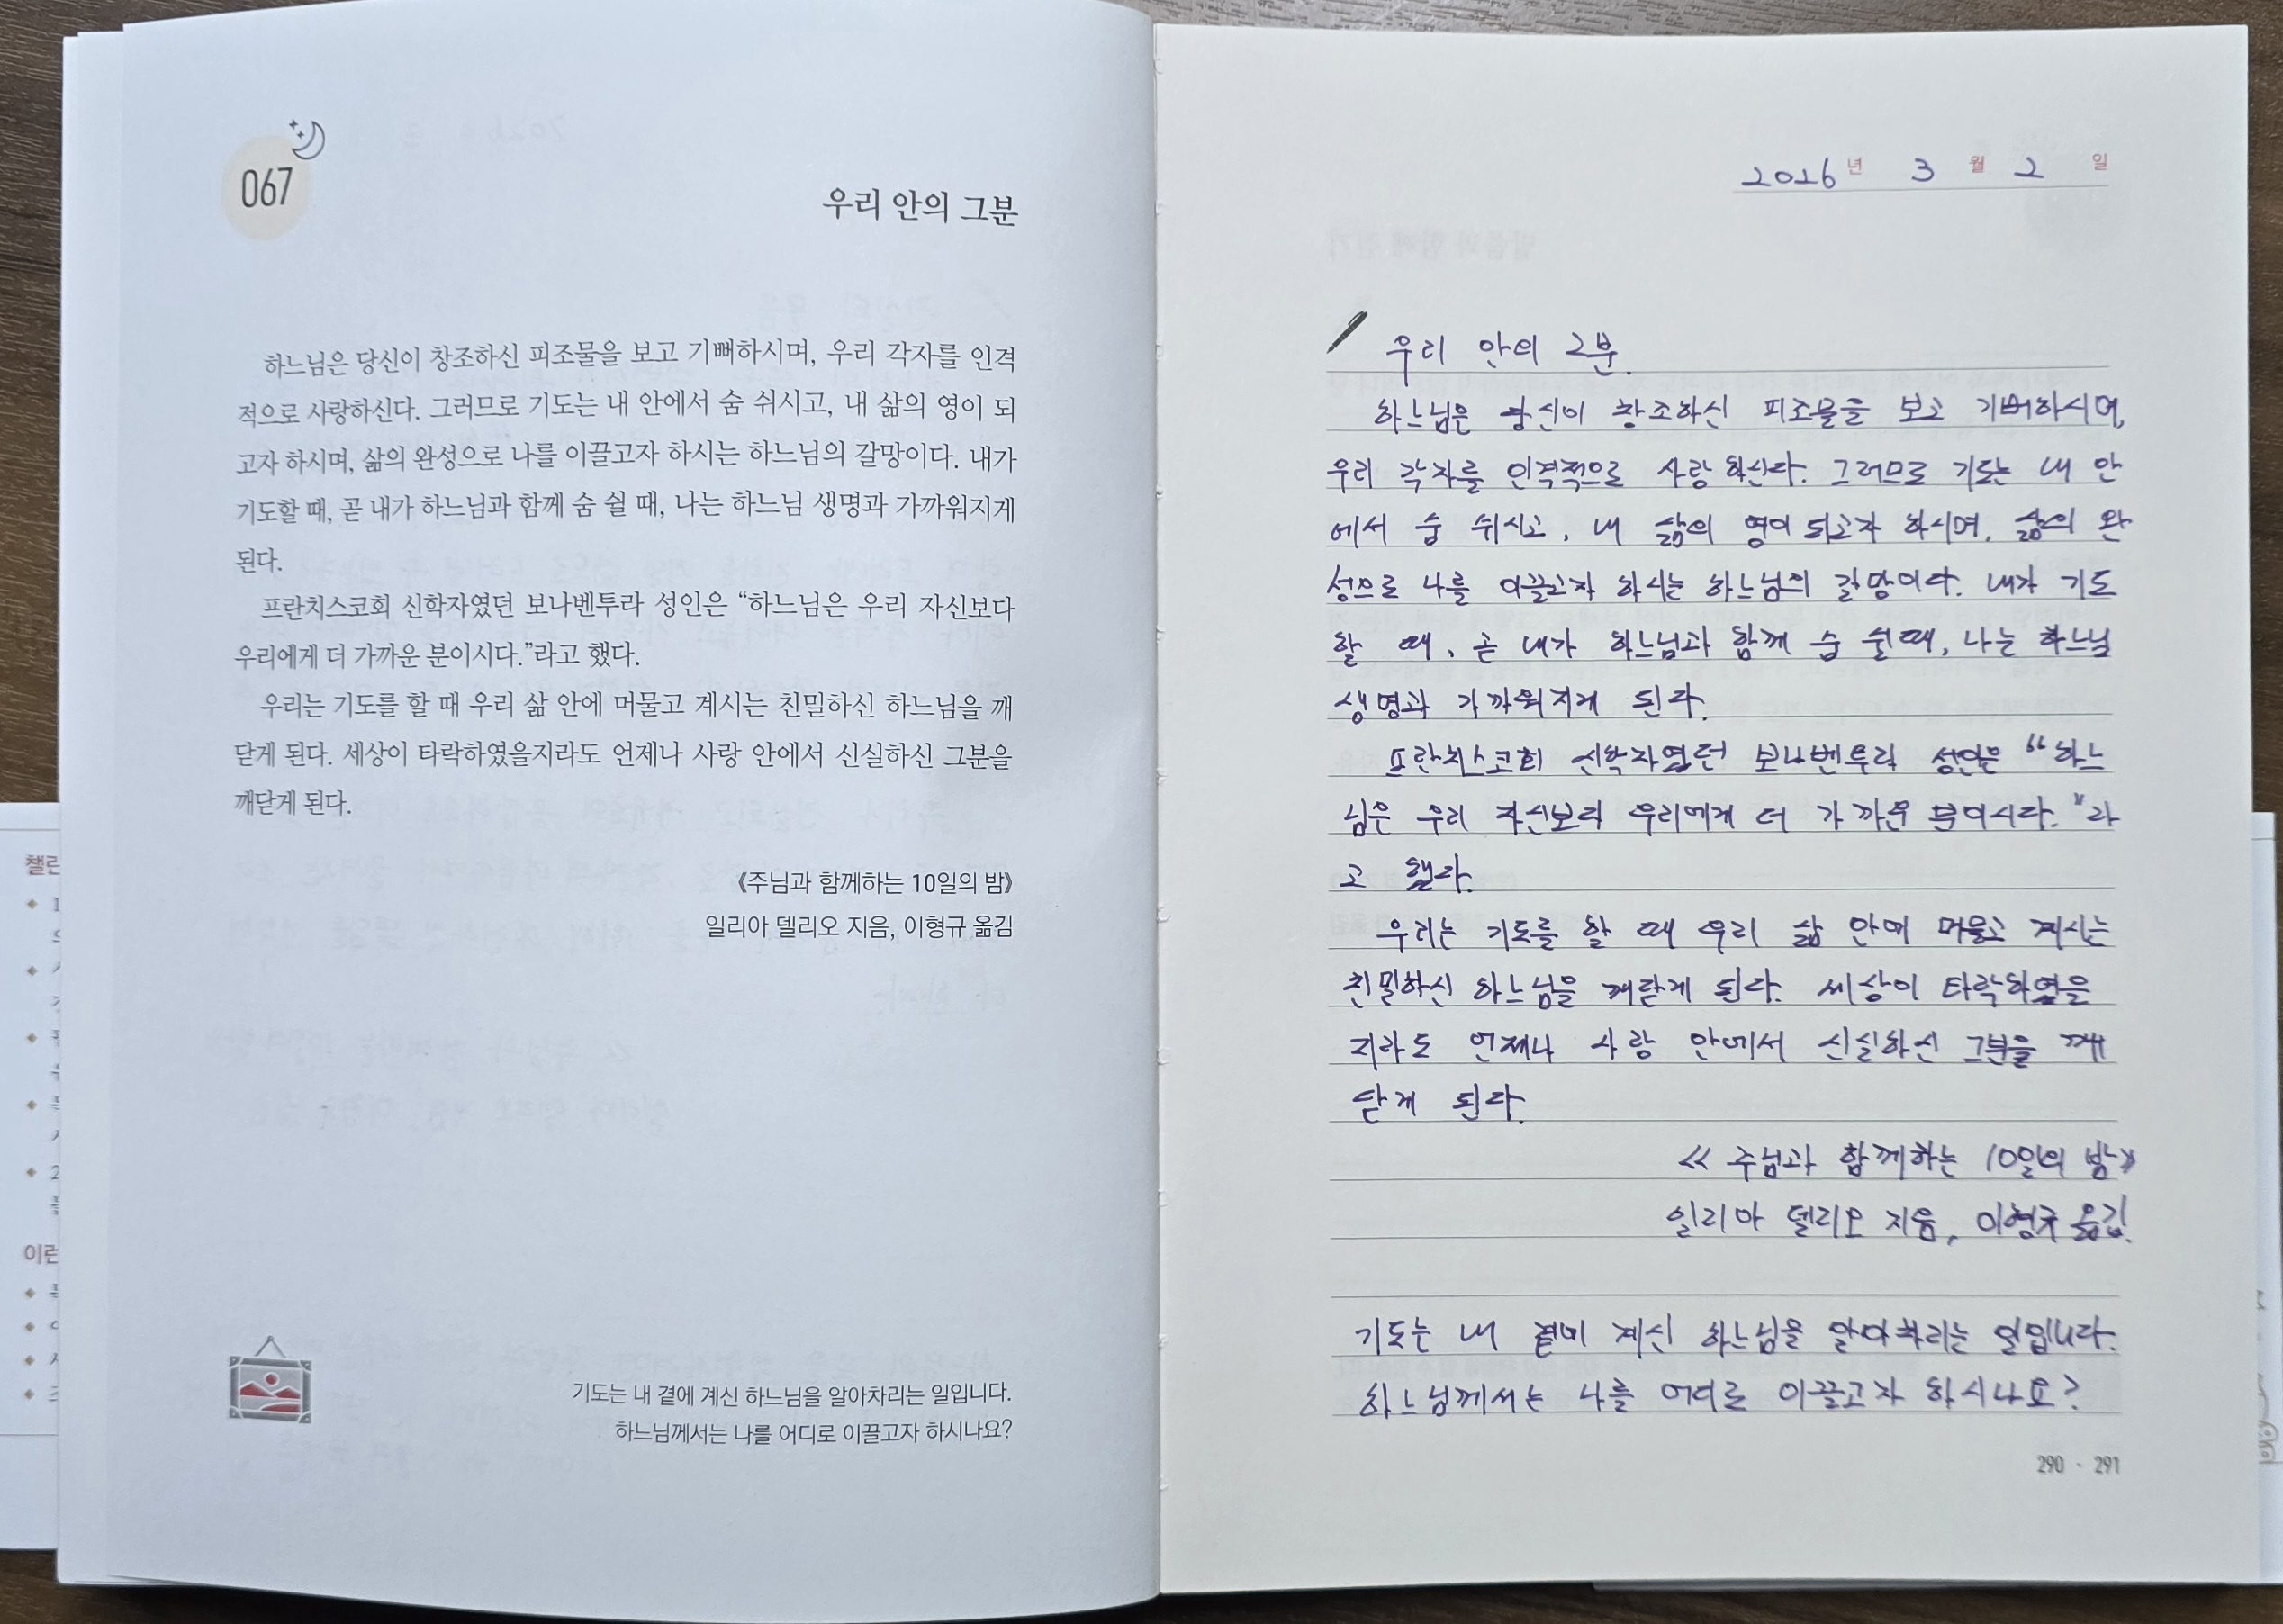 067
우리 안의 그분
하느님은 당신이 창조하신 피조물을 보고 기뻐하시며, 우리 각자를 인격
적으로 사랑하신다. 그러므로 기도는 내 안에서 숨 쉬시고, 내 삶의 영이 되
고자 하시며, 삶의 완성으로 나를 이끌고자 하시는 하느님의 갈망이다. 내가
기도할 때, 곧 내가 하느님과 함께 숨 쉴 때, 나는 하느님 생명과 가까워지게
된다.
프란치스코회 신학자였던 보나벤투라 성인은 “하느님은 우리 자신보다
우리에게 더 가까운 분이시다.”라고 했다.
우리는 기도를 할 때 우리 삶 안에 머물고 계시는 친밀하신 하느님을 깨
닫게 된다. 세상이 타락하였을지라도 언제나 사랑 안에서 신실하신 그분을
깨닫게 된다.
《주님과 함께하는 10일의 밤》
일리아 델리오 지음, 이형규 옮김
기도는 내 곁에 계신 하느님을 알아차리는 일입니다.
하느님께서는 나를 어디로 이끌고자 하시나요?
챌린
이런
2026년 3월 2일
우리 안의 그분.
하느님은 당신이 창조하신 피조물을 보고 기뻐하시며,
우리 각자를 인격적으로 사랑하신다. 그러므로 기도는 내 안
에서 숨 쉬시고, 내 삶의 영이 되고자 하시며, 삶의 완
성으로 나를 이끌고자 하시는 하느님의 갈망이다. 내가 기도
할 때, 곧 내가 하느님과 함께 숨 쉴때, 나는 하느님
생명과 가까워지게 된다.
프란치스코회 신학자였던 보나벤투라 성인은 “하느
님은 우리 자신보다 우리에게 더 가까운 분이시다.”라
고 했다.
우리는 기도를 할 때 우리 삶 안에 머물고 계시는
친밀하신 하느님을 깨닫게 된다. 세상이 타락하였을
지라도 언제나 사랑 안에서 신실하신 그분을 깨
닫게 된다.
《주님과 함께하는 10일의 밤》
일리아 델리오 지음, 이형규 옮김.
기도는 내 곁에 계신 하느님을 알아차리는 일입니다.
하느님께서는 나를 어디로 이끌고자 하시나요?
290 · 291